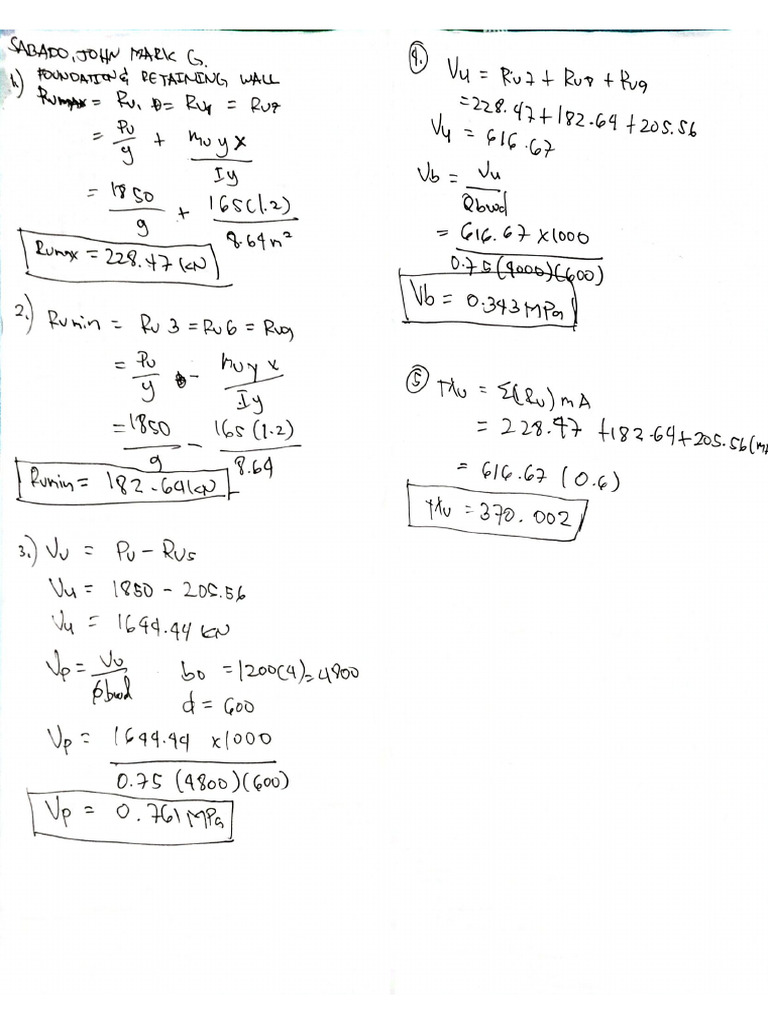 SABADO, JOHN MARK G.
FOUNDATION & RETAINING WALL
1.) Rumax = Ru1 = Ru4 = Ru7
= Pu/9 + Muyx/Iy
= 1850/9 + 165(1.2)/8.64m²
Rumax = 228.47 kN
2.) Rumin = Ru3 = Ru6 = Ru9
= Pu/9 - Muyx/Iy
= 1850/9 - 165(1.2)/8.64
Rumin = 182.64 kN
3.) Vu = Pu - Ru5
Vu = 1850 - 205.56
Vu = 1644.44 kN
Vp = Vu/φbwd bo = 1200(4) = 4800
d = 600
Vp = 1644.44 x1000/0.75 (4800)(600)
Vp = 0.761 MPa
4. Vu = Ru7 + Ru8 + Ru9
= 228.47 + 182.64 + 205.56
Vu = 616.67
Vb = Vu/Qbwd
= 616.67 x1000/0.75 (4000)(600)
Vb = 0.343 MPa
5 Mu = Σ(Ru) mA
= 228.47 + 182.64 + 205.56 (mA
= 616.67 (0.6)
Mu = 370.002